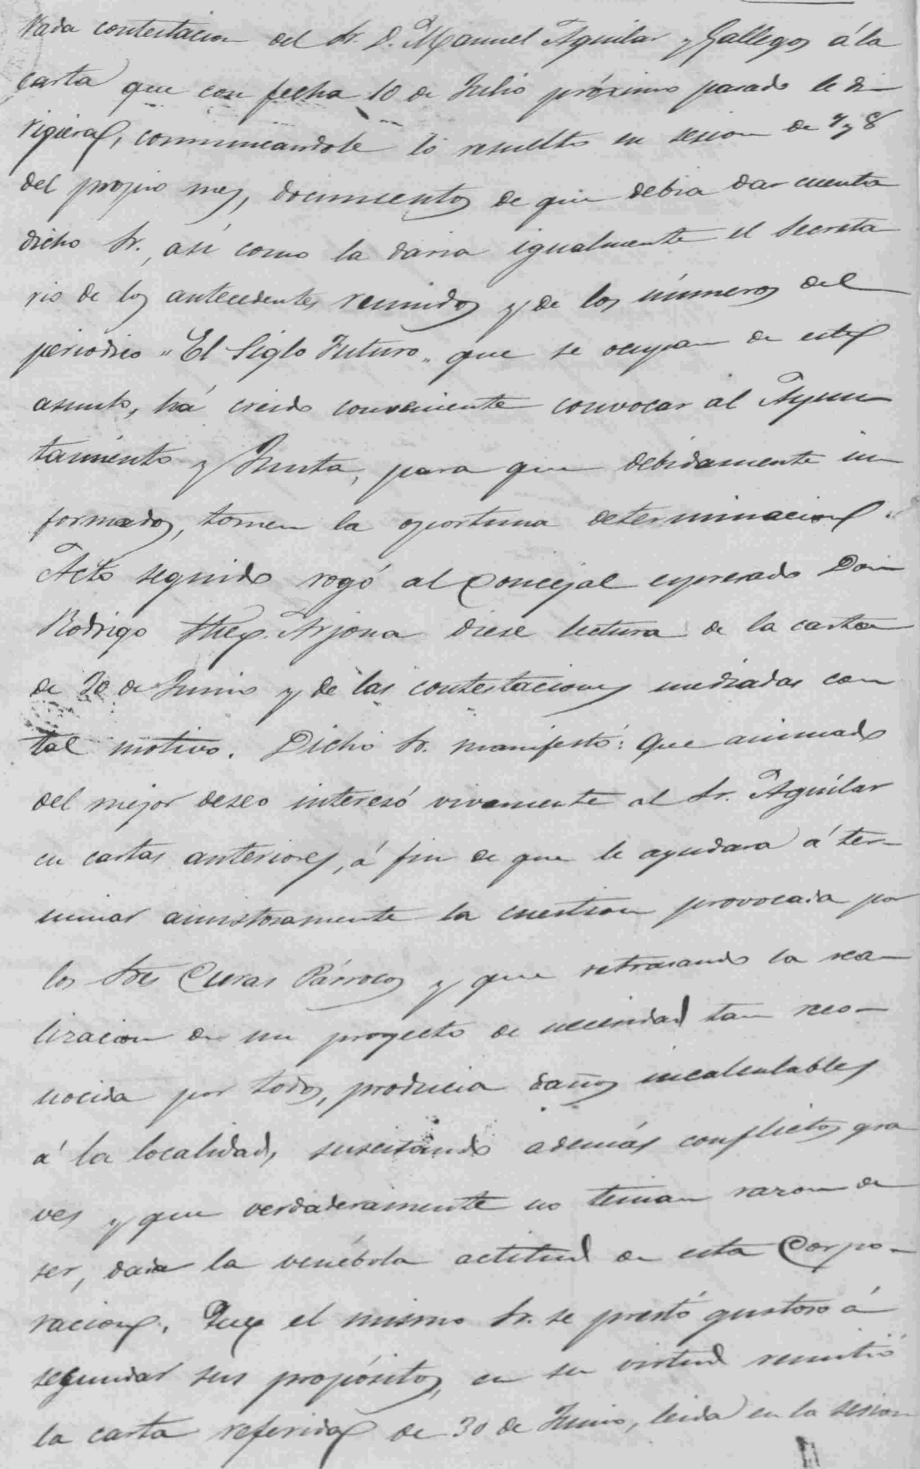 vada contestacion del Sr. D. Manuel Aguilar y Gallegos á la
carta que con fecha 10 de Julio próximo pasado le di
rigiera, comunicandole lo resuelto en sesion de 7 y 8
del propio mes, documentos de que debia dar cuenta
dicho Sr., así como la daria igualmente el Secreta
rio de los antecedentes reunidos y de los números del
periodico "El Siglo Futuro" que se ocupan de este
asunto, há creido conveniente convocar al Ayun
tamiento y Junta, para que debidamente in
formados, tomen la oportuna determinacion.
Acto seguido rogó al Concejal expresado Don
Rodrigo Arjona diese lectura de la carta
de 30 de Junio y de las contestaciones mediadas con
tal motivo. Dicho Sr. manifestó: Que animado
del mejor deseo interesó vivamente al Sr. Aguilar
en cartas anteriores, á fin de que le ayudara á ter-
minar amistosamente la cuestion provocada por
los tres Curas Párrocos y que retrasando la rea-
lizacion de un proyecto de necesidad tan reco-
nocida por todos, producia daños incalculables
á la localidad, suscitando además conflictos gra
ves y que verdaderamente no tenian razon de
ser, dada la benébola actitud de esta Corpo-
racion. Que el mismo Sr. se prestó gustoso á
segundar sus propósitos, en su virtud remitió
la carta referida de 30 de Junio, leida en la sesion